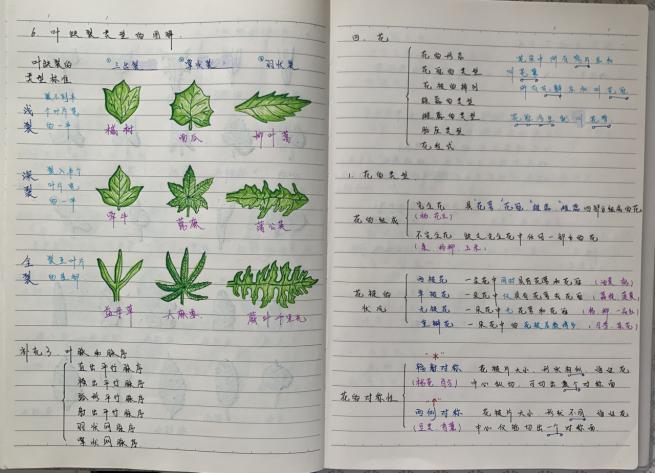 6. 叶缺裂类型的图解.
叶缺裂的类型标准
①三出裂 ②掌状裂 ③羽状裂
浅裂
裂不到半个叶片宽的一半
槭树 南瓜 柳叶蒿
深裂
裂入半个叶片宽的一半
牵牛 蓖麻 蒲公英
全裂
裂至叶片的基部
益母草 大麻
补充3 叶脉和脉序
直出平行脉序
横出平行脉序
弧形平行脉序
射出平行脉序
羽状网脉序
掌状网脉序
四. 花
花的形态
花冠的类型
花被的排列
雄蕊的类型
雌蕊的类型
胎座类型
花程式
叫花萼
叫花冠
1. 花的类型
花的组成
完全花 具"花萼"花冠"雄蕊"雌蕊四部分组成的花
不完全花 缺乏完全花中任何一部分的花
花被的状况
两被花 一朵花中同时具有花萼和花冠
单被花 一朵花中仅具有花萼无花冠
无被花 一朵花中无花萼和花冠
重瓣花 一朵花中的花被层数增多
花的对称性
"*"
辐射对称 花被片大小,形状相似,通过花
中心纵切,可切出数个对称面
"↑"
两侧对称 花被片大小,形状不同,通过花
中心仅能切出一个对称面